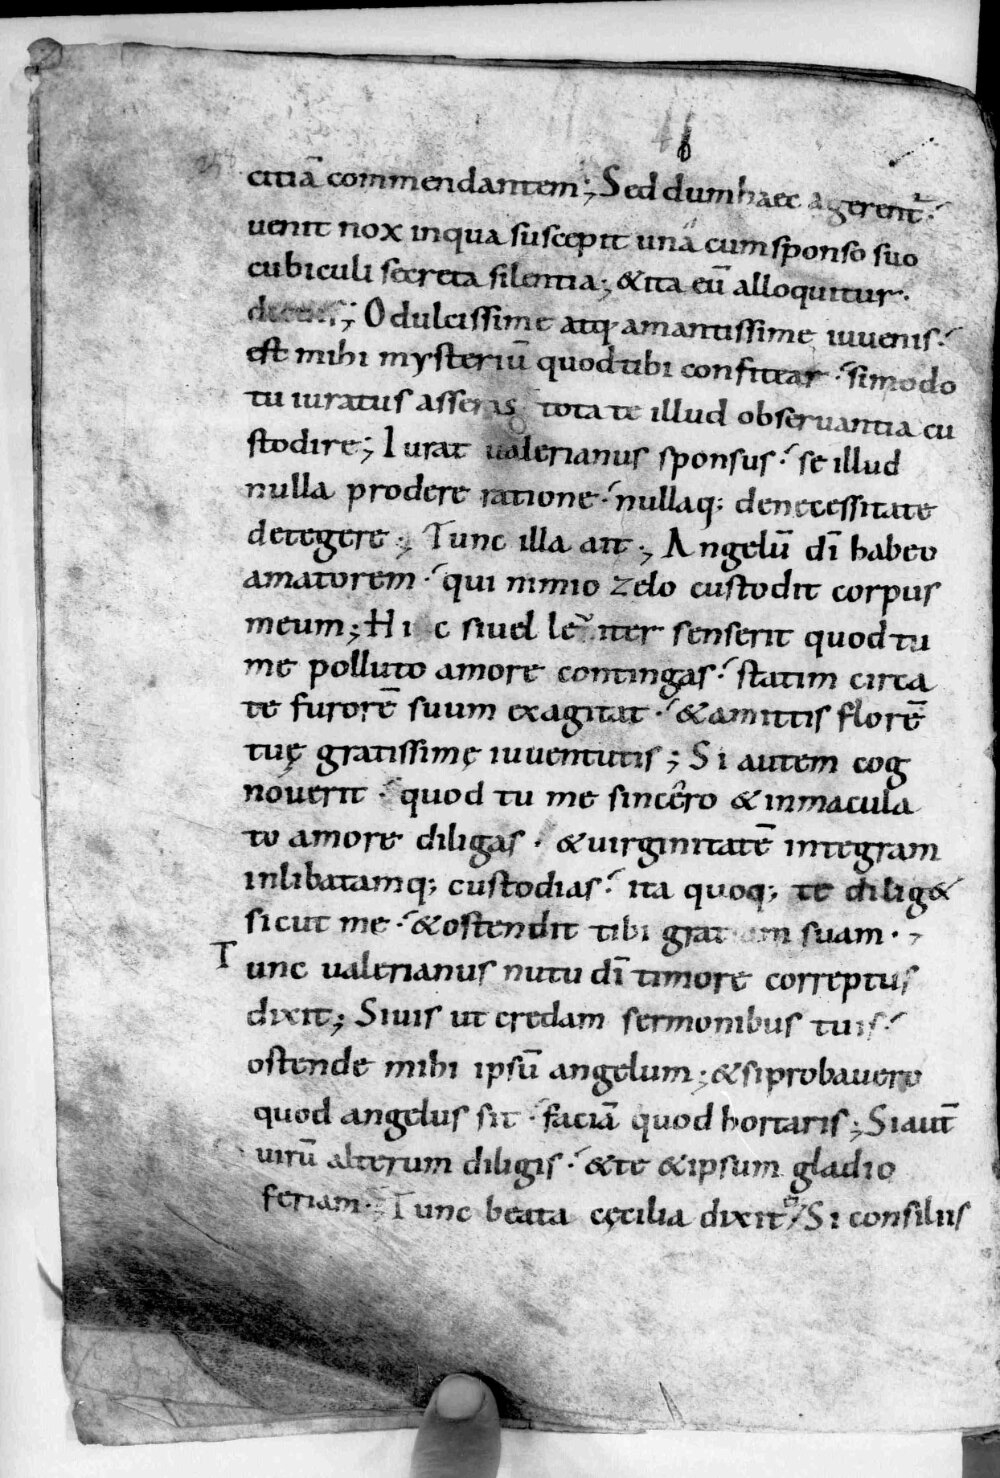 citiā commendantem; Sed dum haec agerent᷑.
uenit nox inqua suscepit unā cumsponso suo
cubiculi secreta silentia; & ita eū alloquitur.
dicens; O dulcissime atq; amantissime iuuenis.
est mihi mysteriū quod tibi confitear. si modo
tu iuratus asseras tota te illud obseruantia cu
stodire; Iurat ualerianus sponsus. se illud
nulla prodere ratione. nullaq; denecessitate
detegere; Tunc illa ait; Angelū dī habeo
amatorem. qui nimio zelo custodit corpus
meum; Hic siuel leuiter senserit quod tu
me polluto amore contingas. statim circa
te furorē suum exagitat. & amittis florē
tuę gratissimę iuuentutis; Si autem cog
nouerit. quod tu me sincero & inmacula
to amore diligas. & uirginitatē integram
inlibatamq; custodias. ita quoq; te dilig&
sicut me. & ostendit tibi gratiam suam.
Tunc ualerianus nutu dī timore correptus
dixit; Siuis ut credam sermonibus tuis.
ostende mihi ipsū angelum; & siprobauero
quod angelus sit. faciā quod hortaris; Siaut̄
uirū alterum diligis. & te & ipsum gladio
feriam; Tunc beata cęcilia dixit; Si consiliis